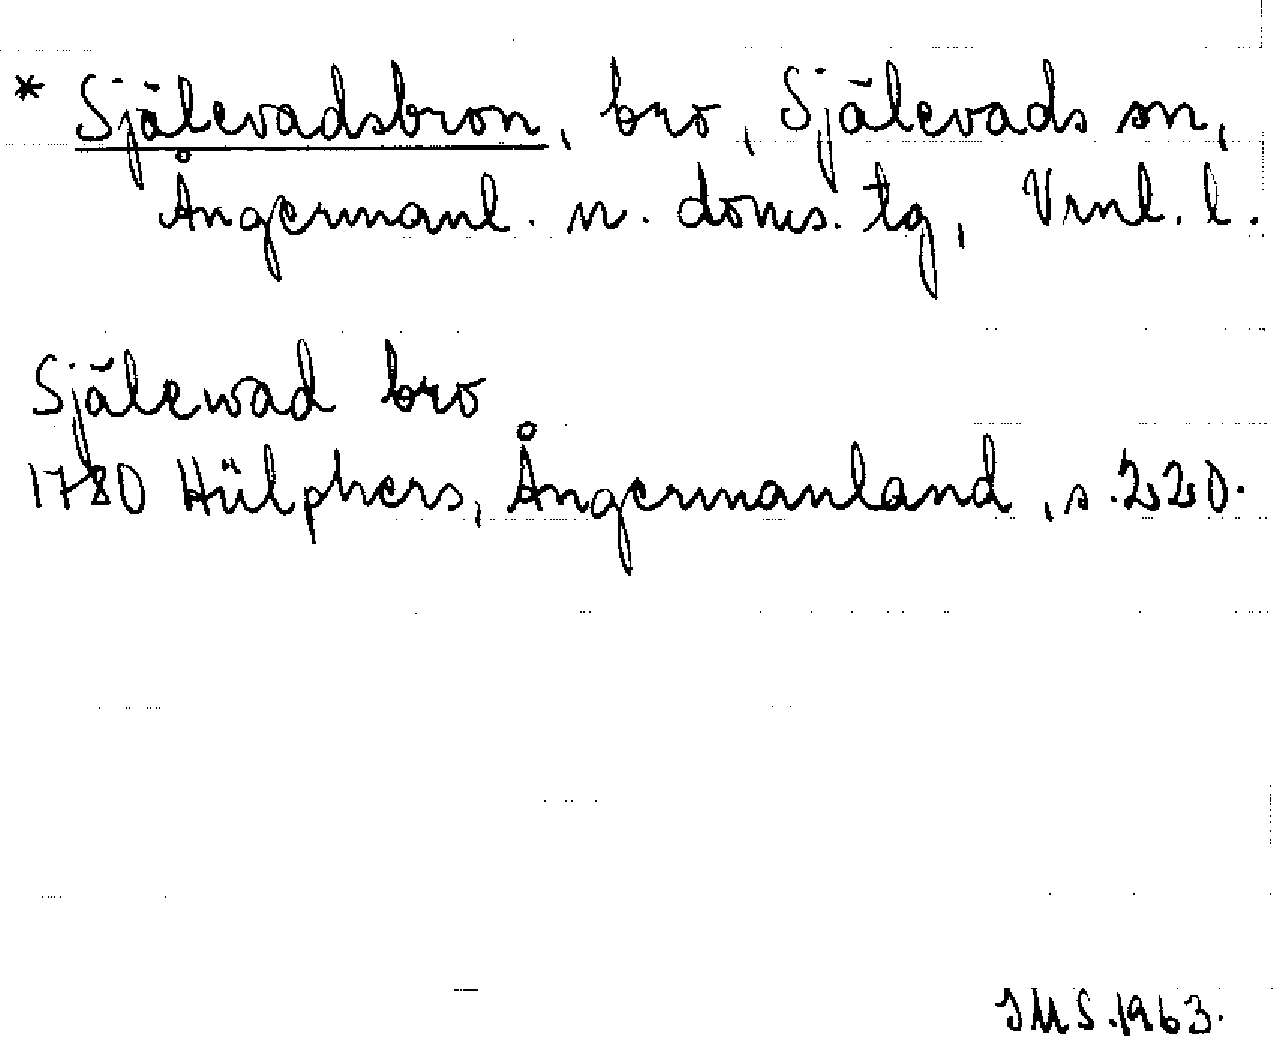 * Själevadsbron, bro, Själevads sn,
Ångermanl. n. doms. tg, Vrnl. l.
Själewad bro
1780 Hülphers, Ångermanland, s. 220.
IMS. 1963.